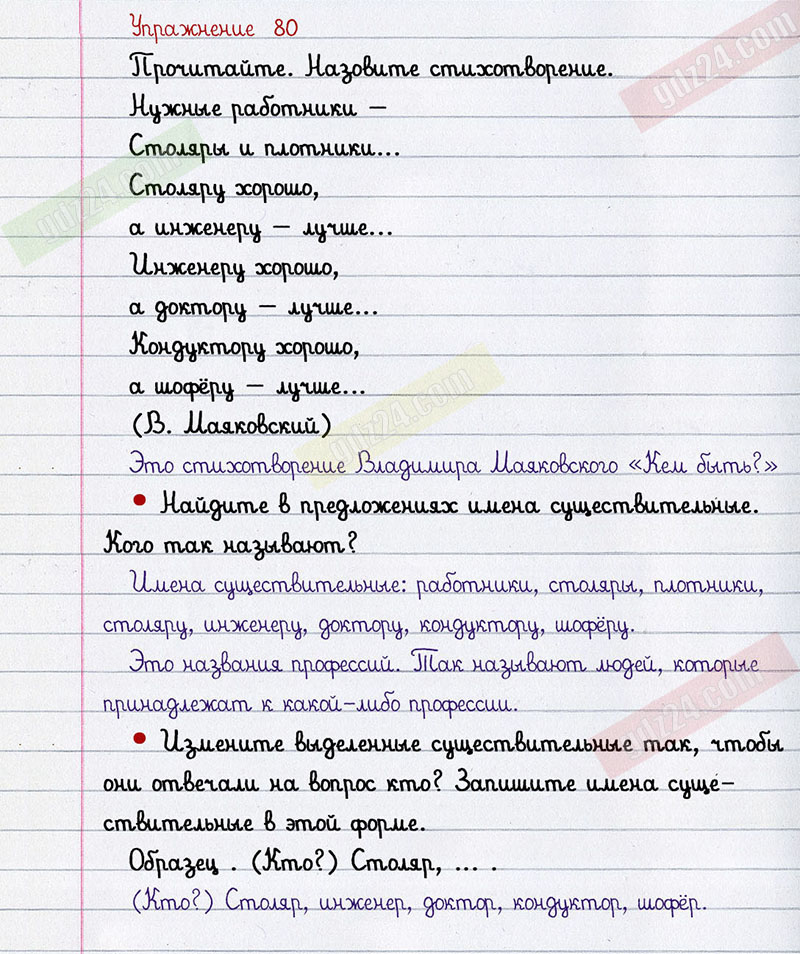 Упражнение 80
Прочитайте. Назовите стихотворение.
Нужные работники —
Столяры и плотники...
Столяру хорошо,
а инженеру — лучше...
Инженеру хорошо,
а доктору — лучше...
Кондуктору хорошо,
а шофёру — лучше...
(В. Маяковский)
Это стихотворение Владимира Маяковского «Кем быть?»
• Найдите в предложениях имена существительные.
Кого так называют?
Имена существительные: работники, столяры, плотники,
столяру, инженеру, доктору, кондуктору, шофёру.
Это названия профессий. Так называют людей, которые
принадлежат к какой-либо профессии.
• Измените выделенные существительные так, чтобы
они отвечали на вопрос кто? Запишите имена суще-
ствительные в этой форме.
Образец . (Кто?) Столяр, ... .
(Кто?) Столяр, инженер, доктор, кондуктор, шофёр.
gdz24.com
gdz24.com
gdz24.com
gdz24.com